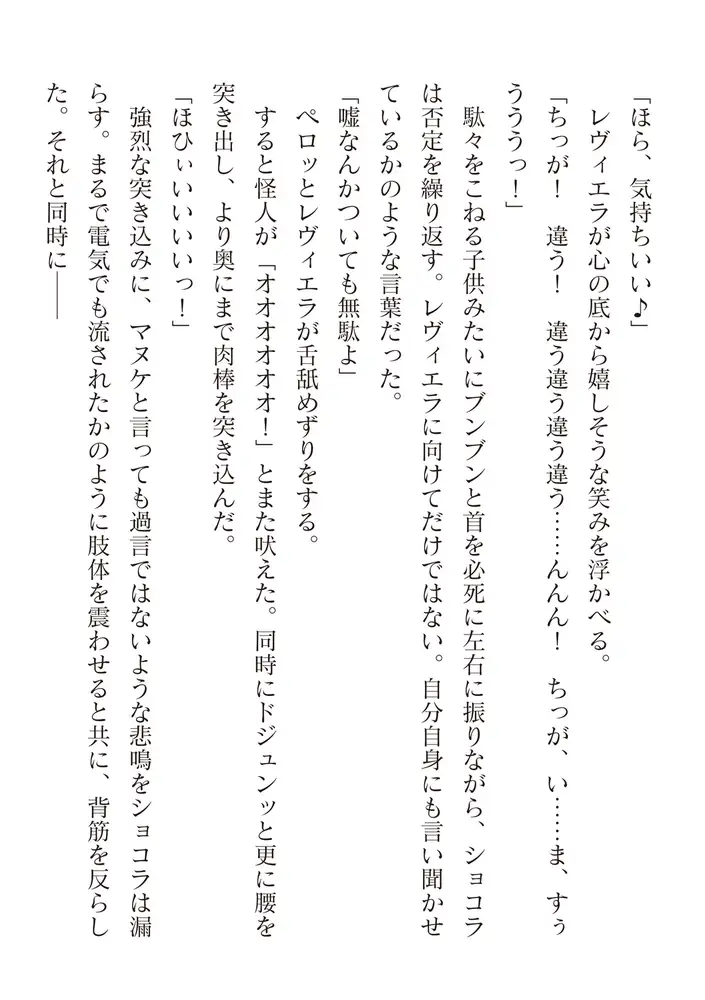 「ほら、気持ちいい♪」
レヴィエラが心の底から嬉しそうな笑みを浮かべる。
「ちっが！　違う！　違う違う違う……んんん！　ちっが、い……ま、すぅ
うううっ！」
駄々をこねる子供みたいにブンブンと首を必死に左右に振りながら、ショコラ
は否定を繰り返す。レヴィエラに向けてだけではない。自分自身にも言い聞かせ
ているかのような言葉だった。
「嘘なんかついても無駄よ」
ペロッとレヴィエラが舌舐めずりをする。
すると怪人が「オオオオオオ！」とまた吠えた。同時にドジュンッと更に腰を
突き出し、より奥にまで肉棒を突き込んだ。
「ほひぃいいいいっ！」
強烈な突き込みに、マヌケと言っても過言ではないような悲鳴をショコラは漏
らす。まるで電気でも流されたかのように肢体を震わせると共に、背筋を反らし
た。それと同時に――